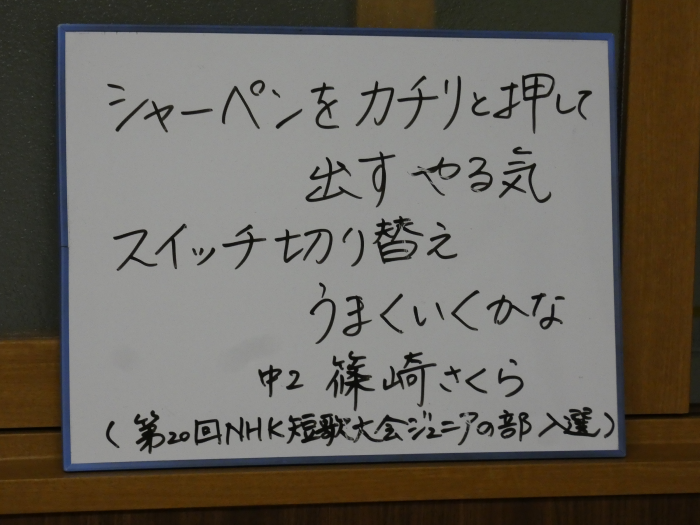 シャーペンをカチリと押して
出すやる気
スイッチ切り替え
うまくいくかな
中2 篠崎さくら
(第20回NHK短歌大会ジュニアの部入選)